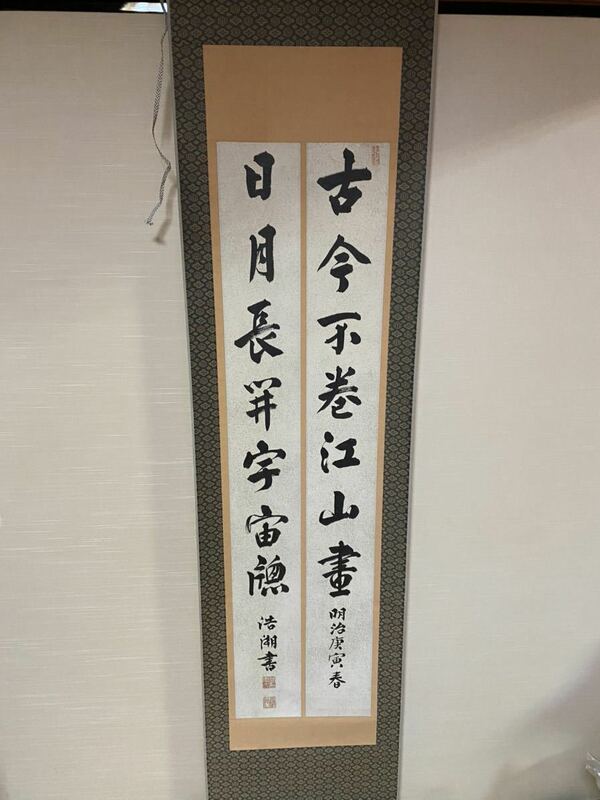 古今不卷江山畫
明治庚寅春
日月長開宇宙牕
浩湖書